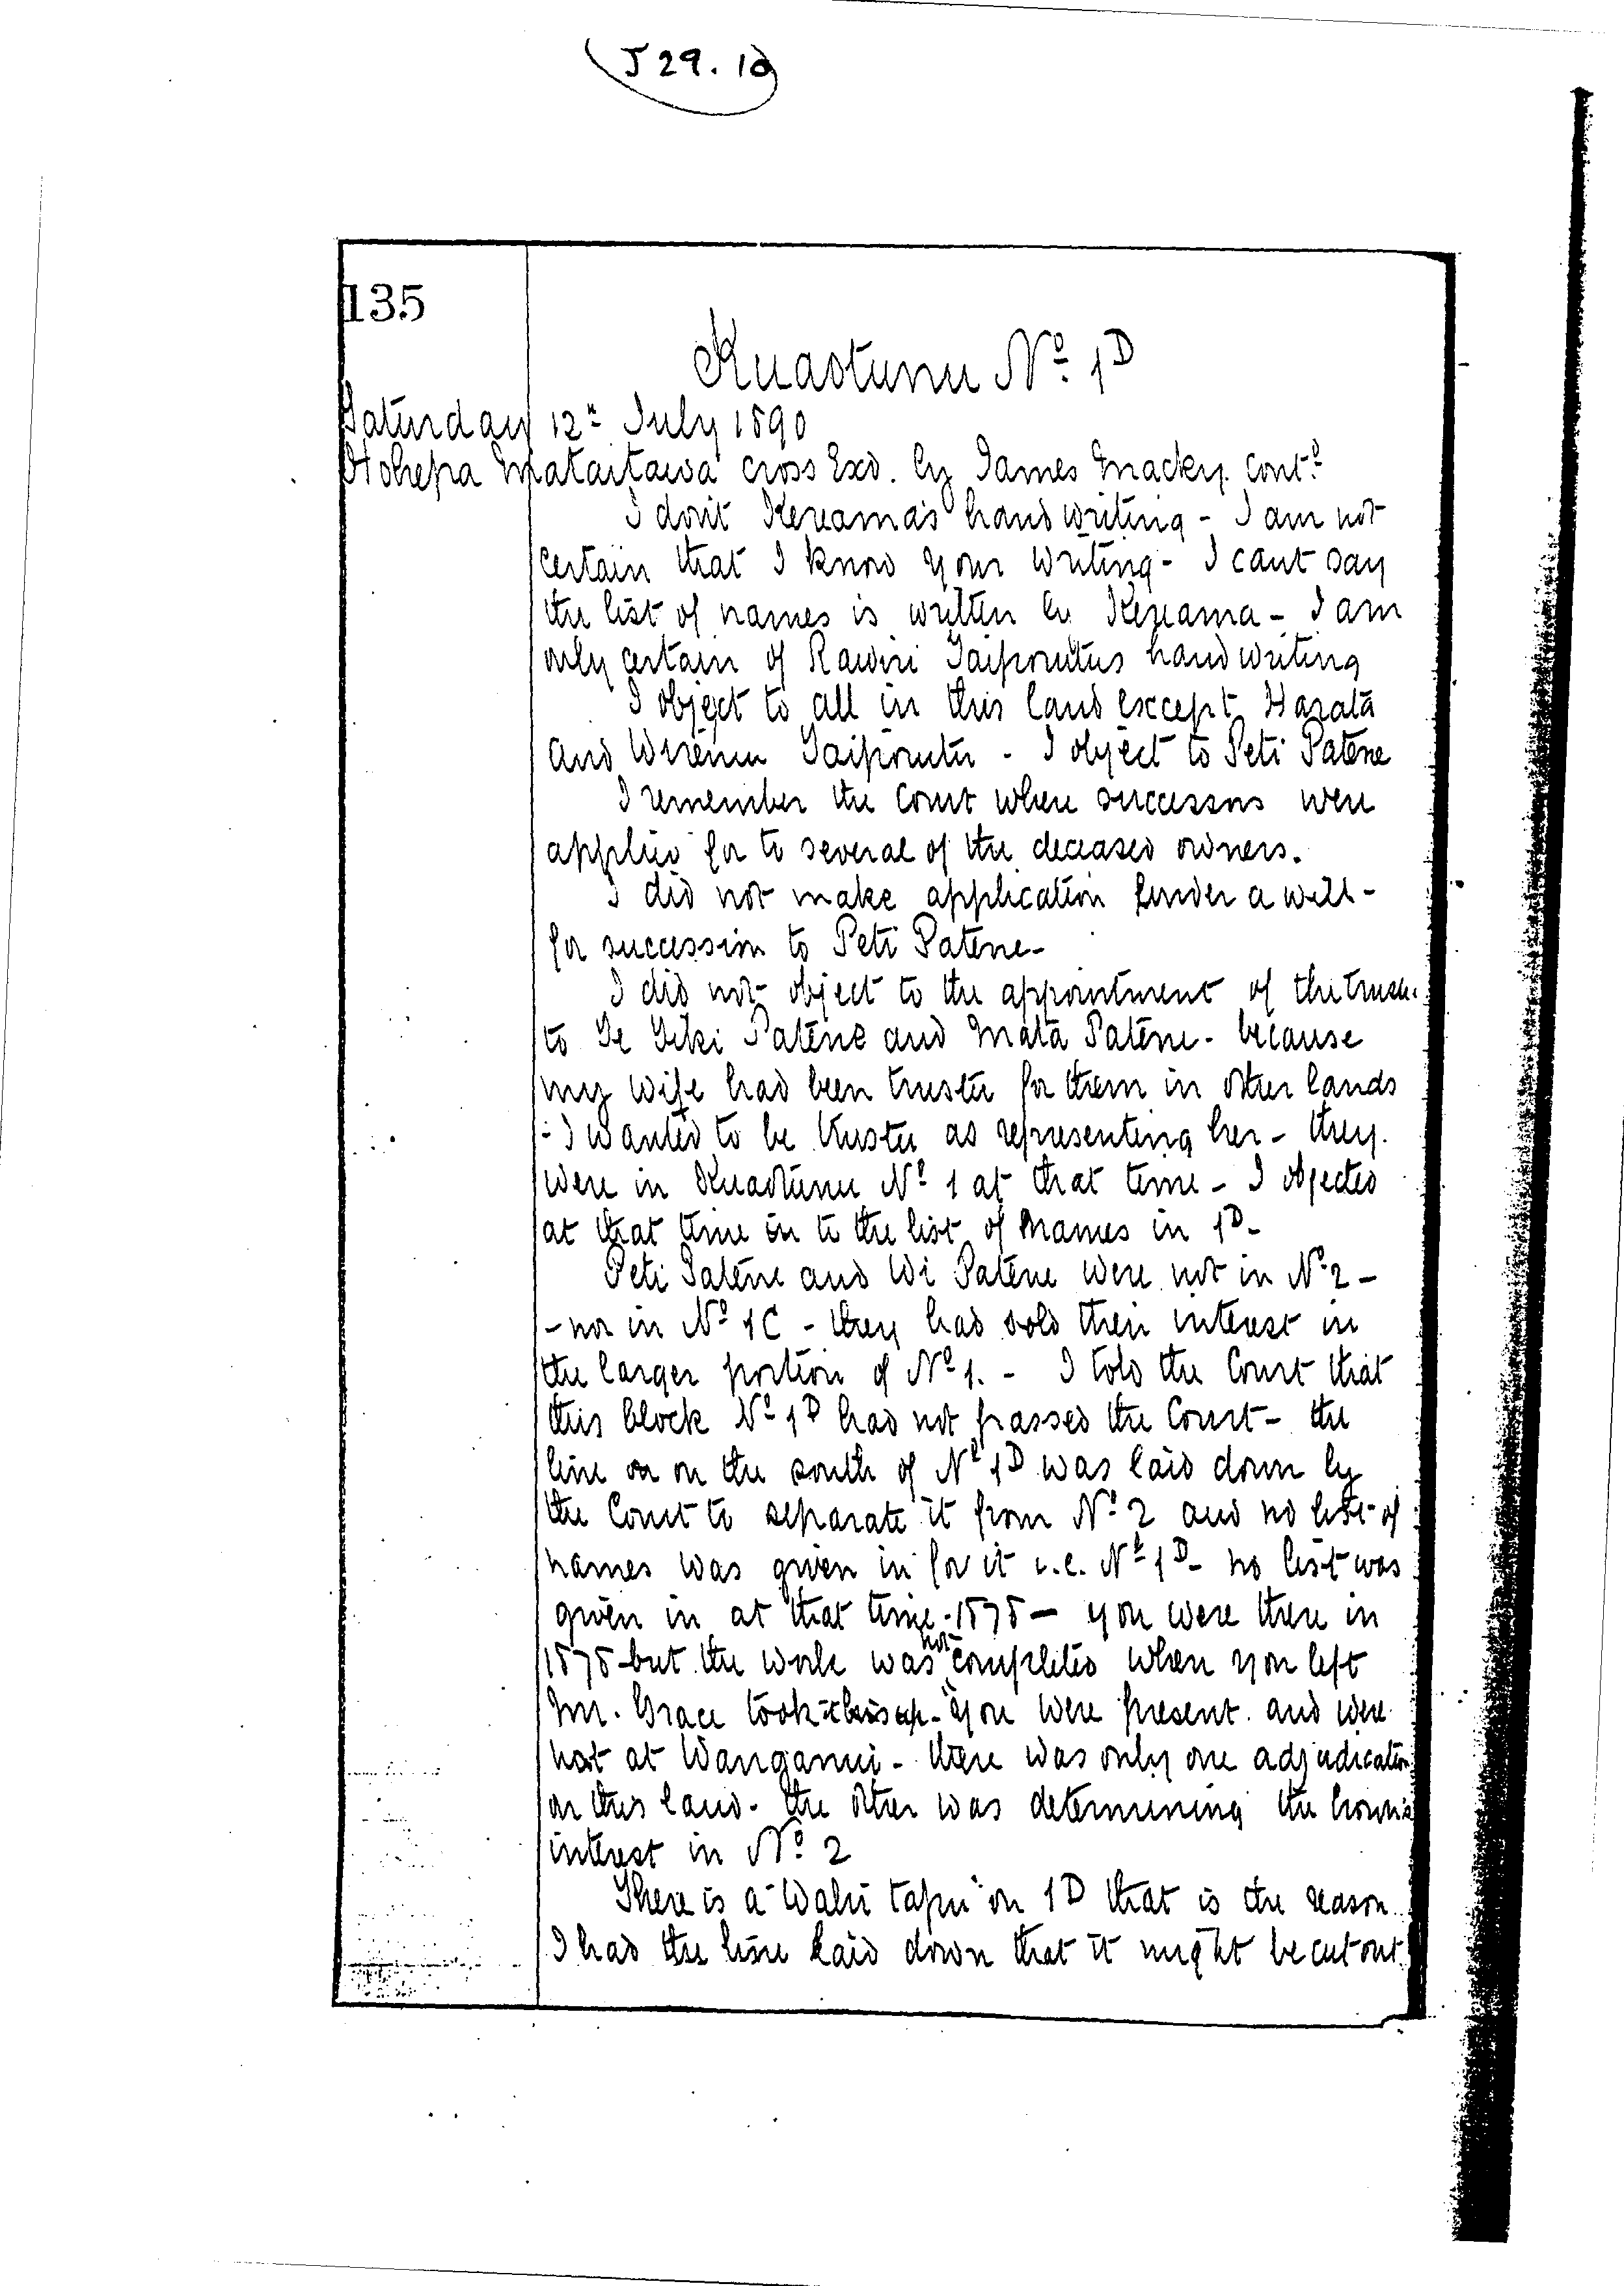 J 29. 10
135
Kuaotunu No. 1D
Saturday 12th July 1890
Hohepa Mataitawa cross Exd. by James Mackey Contd
I don't Kereama's handwriting - I am not
certain that I know your writing - I cant say
the list of names is written by Kereama - I am
only certain of Rawiri Taiporutus handwriting
I object to all in this land except Harata
and Wiremu Taiporutu - I object to Peti Patene
I remember the Court when successors were
applied for to several of the deceased owners.
I did not make application under a will -
for succession to Peti Patene -
I did not object to the appointment of the
to Te Patene and Mata Patene - because
my wife had been trustee for them in other lands
- I wanted to be trustee as representing her - they
were in Kuaotunu No 1 at that time - I objected
at that time to the list of names in 1D -
Peti Patene and Wi Patene were not in No 2 -
- nor in No 1C - they had sold their interest in
the larger portion of No 1. - I told the Court that
this block No 1D had not passed the Court - the
line on the south of No 1D was laid down by
the Court to separate it from No 2 and no list of
names was given in for it i.e. No 1D - no list was
given in at that time - 1878 - you were there in
1878 but the work was not completed when you left
Mr. Grace took this up - you were present and were
not at Wanganui - there was only one adjudication
on this land - the other was determining the Crown's
interest in No 2
There is a "Wahi tapu" on 1D that is the reason
I had the line laid down that it might be cut out.